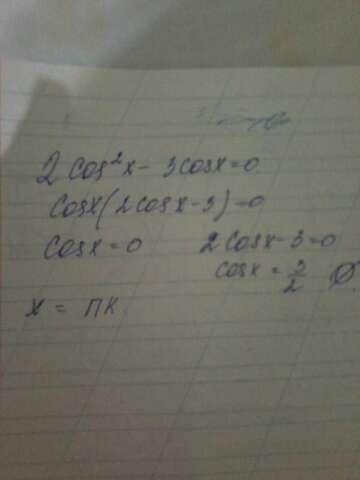 2cos²x - 3cosx=0
cosx(2cosx-3)=0
cosx=0 2cosx-3=0
cosx = 3/2 Ø
x = πk